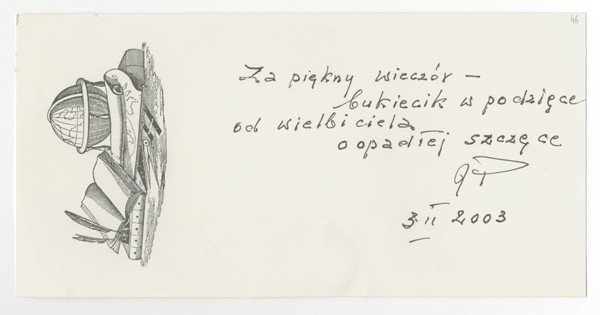 46
Za piękny wieczór –
bukiecik w podzięce
od wielbiciela
o opadłej szczęce
3 II 2003